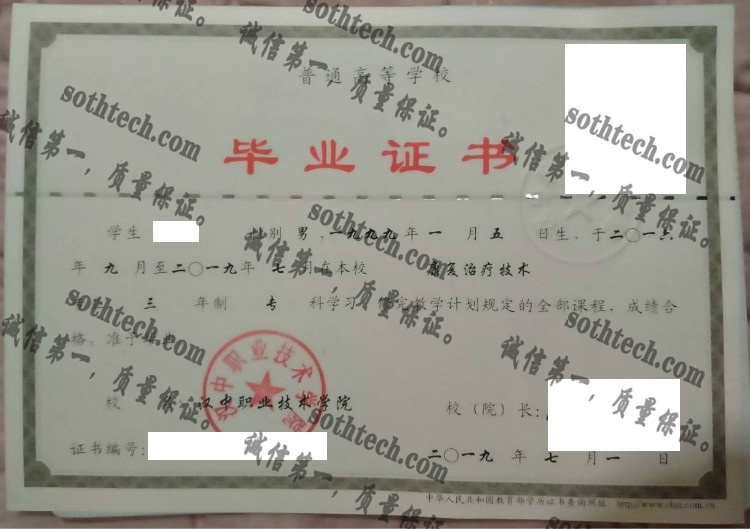 普通高等学校
毕业证书
学生 性别 男 ,一九九九年 一 月 五 日生，于二〇一六
年 九 月至二〇一九年 七 月在本校 康复治疗技术
三 年制 专 科学习 修完教学计划规定的全部课程，成绩合
格，准予毕业
校 汉中职业技术学院 校（院）长：
证书编号：
二〇一九 年 七 月 一 日
中华人民共和国教育部学历证书查询网址：http://www.chsi.com.cn
汉中职业技术学院
sothtech.com
诚信第一，质量保证。
sothtech.com
诚信第一，质量保证。
sothtech.com
诚信第一，质量保证。
sothtech.com
诚信第一，质量保证。
sothtech.com
诚信第一，质量保证。
sothtech.com
诚信第一，质量保证。
sothtech.com
诚信第一，质量保证。
sothtech.com